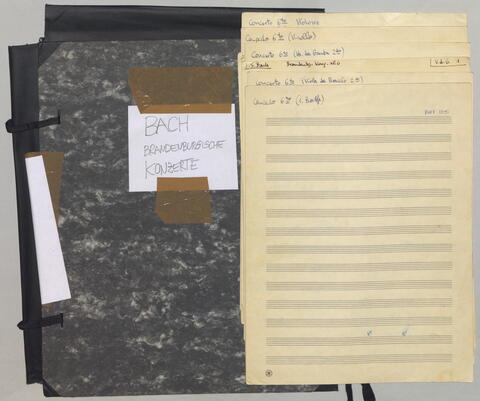 BACH
BRANDENBURGISCHE
KONZERTE
Concerto 6to Violone
Concerto 6to (V.cello)
Concerto 6to (Va. da Gamba 2da)
J. S. Bach Brandenbg. Konz. Nr 6 V.d.G. 1
Concerto 6to (Viola da Braccio 2da)
Concerto 6to